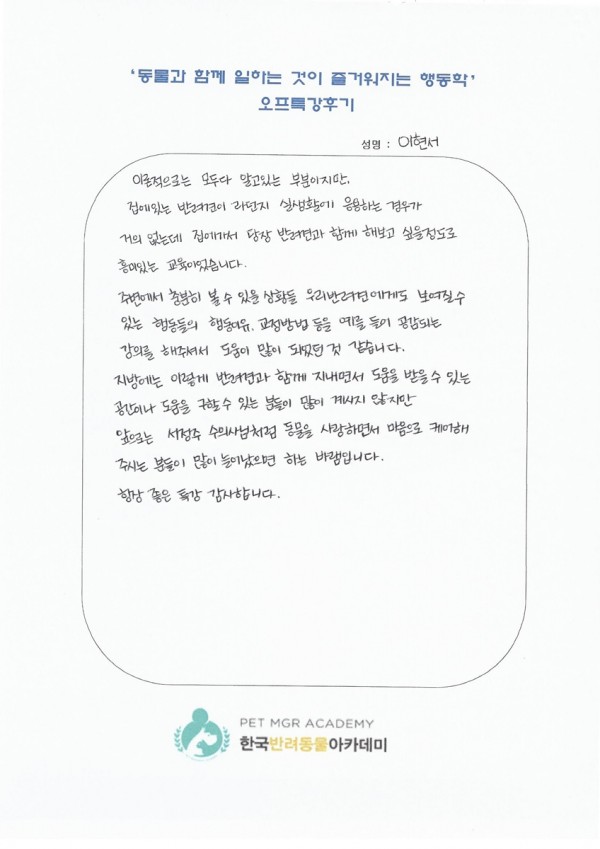 '동물과 함께 일하는 것이 즐거워지는 행동학'
오프특강후기
성명 : 이현서
이론적으로는 모두다 알고있는 부분이지만,
집에있는 반려견이 라던지 실생활에 응용하는 경우가
거의 없는데 집에가서 당장 반려견과 함께 해보고 싶을정도로
흥미있는 교육이었습니다.
주변에서 충분히 볼 수 있을 상황들 우리반려견에게도 보여질수
있는 행동들의 행동이유, 교정방법 등을 예를 들어 공감되는
강의를 해주셔서 도움이 많이 되었던 것 같습니다.
지방에는 이렇게 반려견과 함께 지내면서 도움을 받을 수 있는
공간이나 도움을 구할 수 있는 분들이 많이 계시지 않지만
앞으로는 서정주 수의사님처럼 동물을 사랑하면서 마음으로 케어해
주시는 분들이 많이 늘어났으면 하는 바램입니다.
항상 좋은 특강 감사합니다.
PET MGR ACADEMY
한국반려동물아카데미